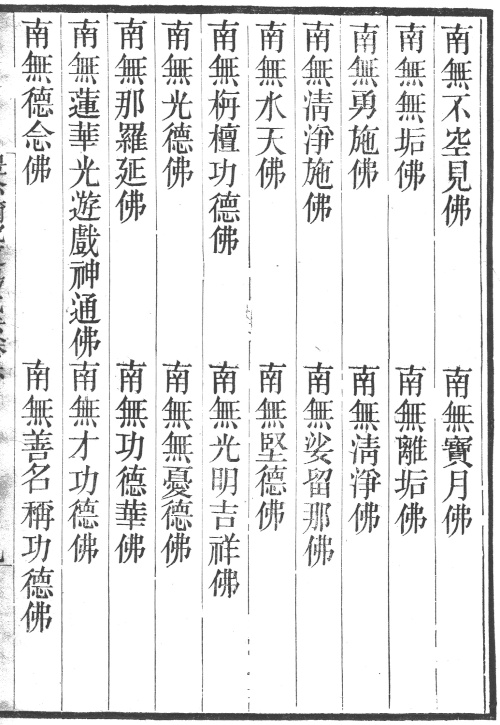 南無不空見佛　南無寶月佛
南無無垢佛　南無離垢佛
南無勇施佛　南無淸淨佛
南無淸淨施佛　南無娑留那佛
南無水天佛　南無堅德佛
南無栴檀功德佛　南無光明吉祥佛
南無光德佛　南無無憂德佛
南無那羅延佛　南無功德華佛
南無蓮華光遊戲神通佛　南無才功德佛
南無德念佛　南無善名稱功德佛